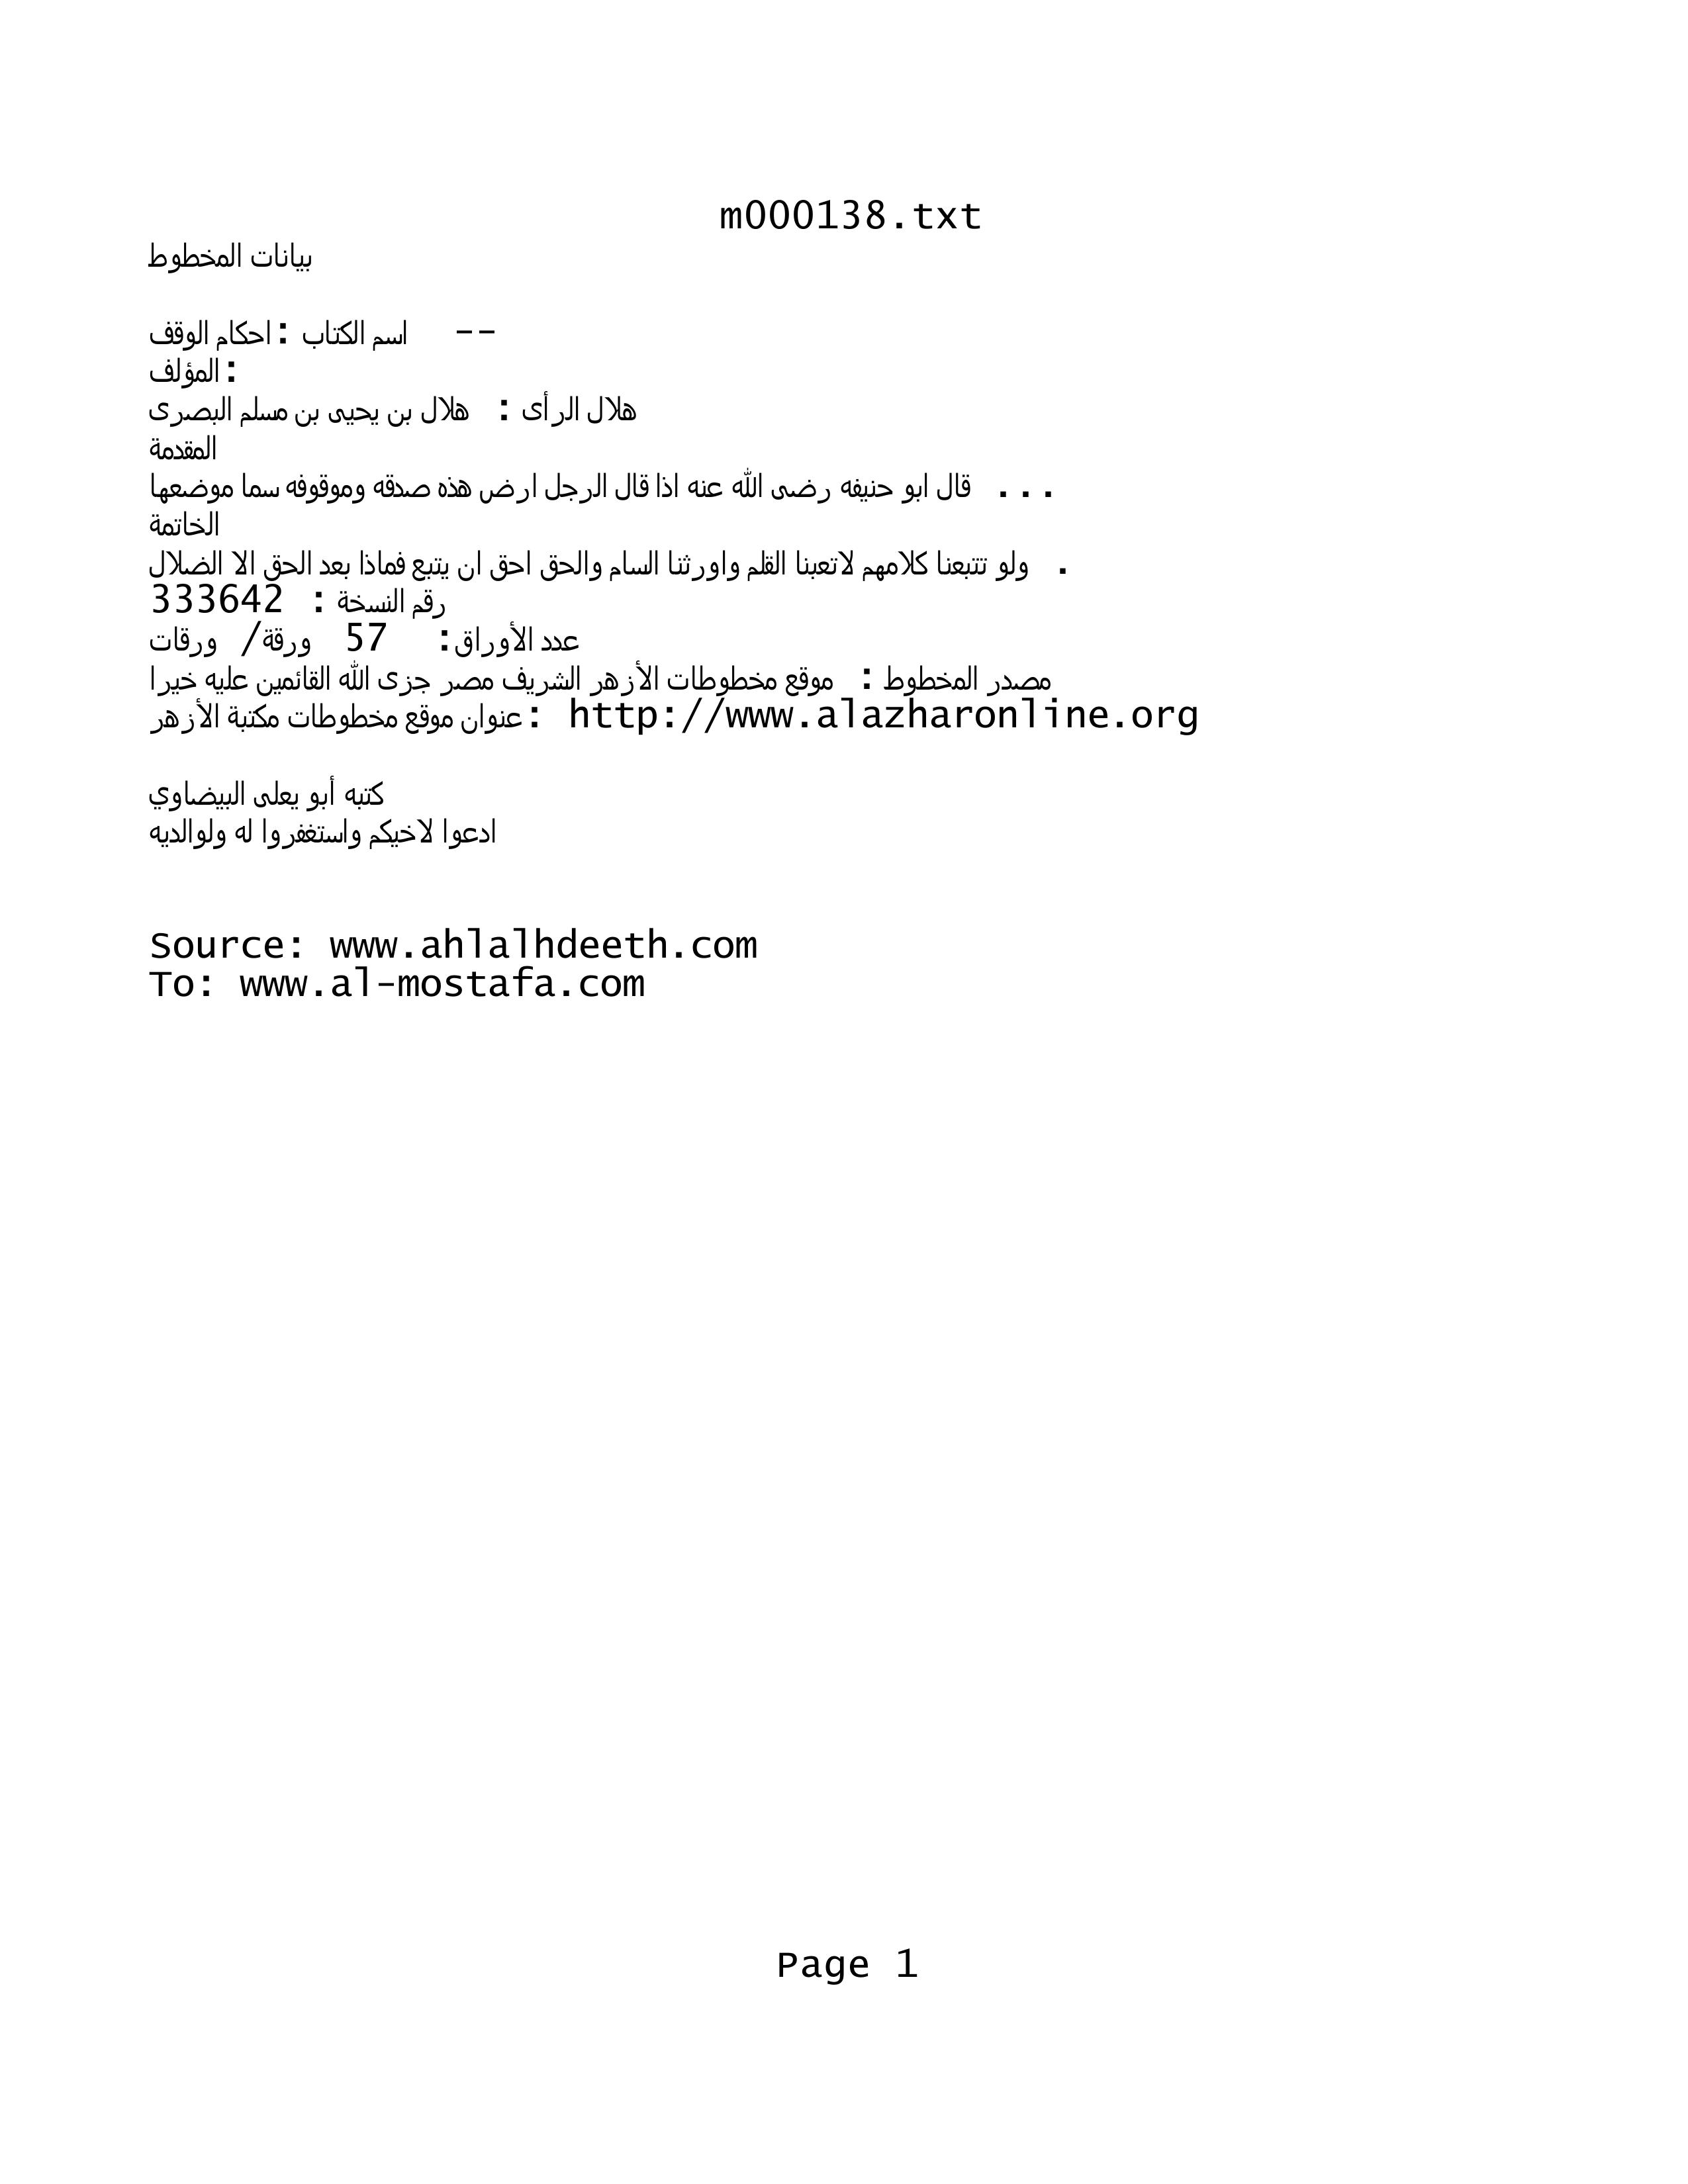 m000138.txt
بيانات المخطوط
اسم الكتاب : احكام الوقف --
المؤلف:
هلال الرأى : هلال بن يحيى بن مسلم البصرى
المقدمة
قال ابو حنيفه رضى الله عنه اذا قال الرجل ارض هذه صدقه وموقوفه سما موضعها ...
الخاتمة
ولو تتبعنا كلامهم لاتعبنا القلم واورثنا السام والحق احق ان يتبع فماذا بعد الحق الا الضلال .
رقم النسخة : 333642
عدد الأوراق: 57 ورقة/ ورقات
مصدر المخطوط : موقع مخطوطات الأزهر الشريف مصر جزى الله القائمين عليه خيرا
عنوان موقع مخطوطات مكتبة الأزهر: http://www.alazharonline.org
كتبه أبو يعلى البيضاوي
ادعوا لاخيكم واستغفروا له ولوالديه
Source: www.ahlalhdeeth.com
To: www.al-mostafa.com
Page 1